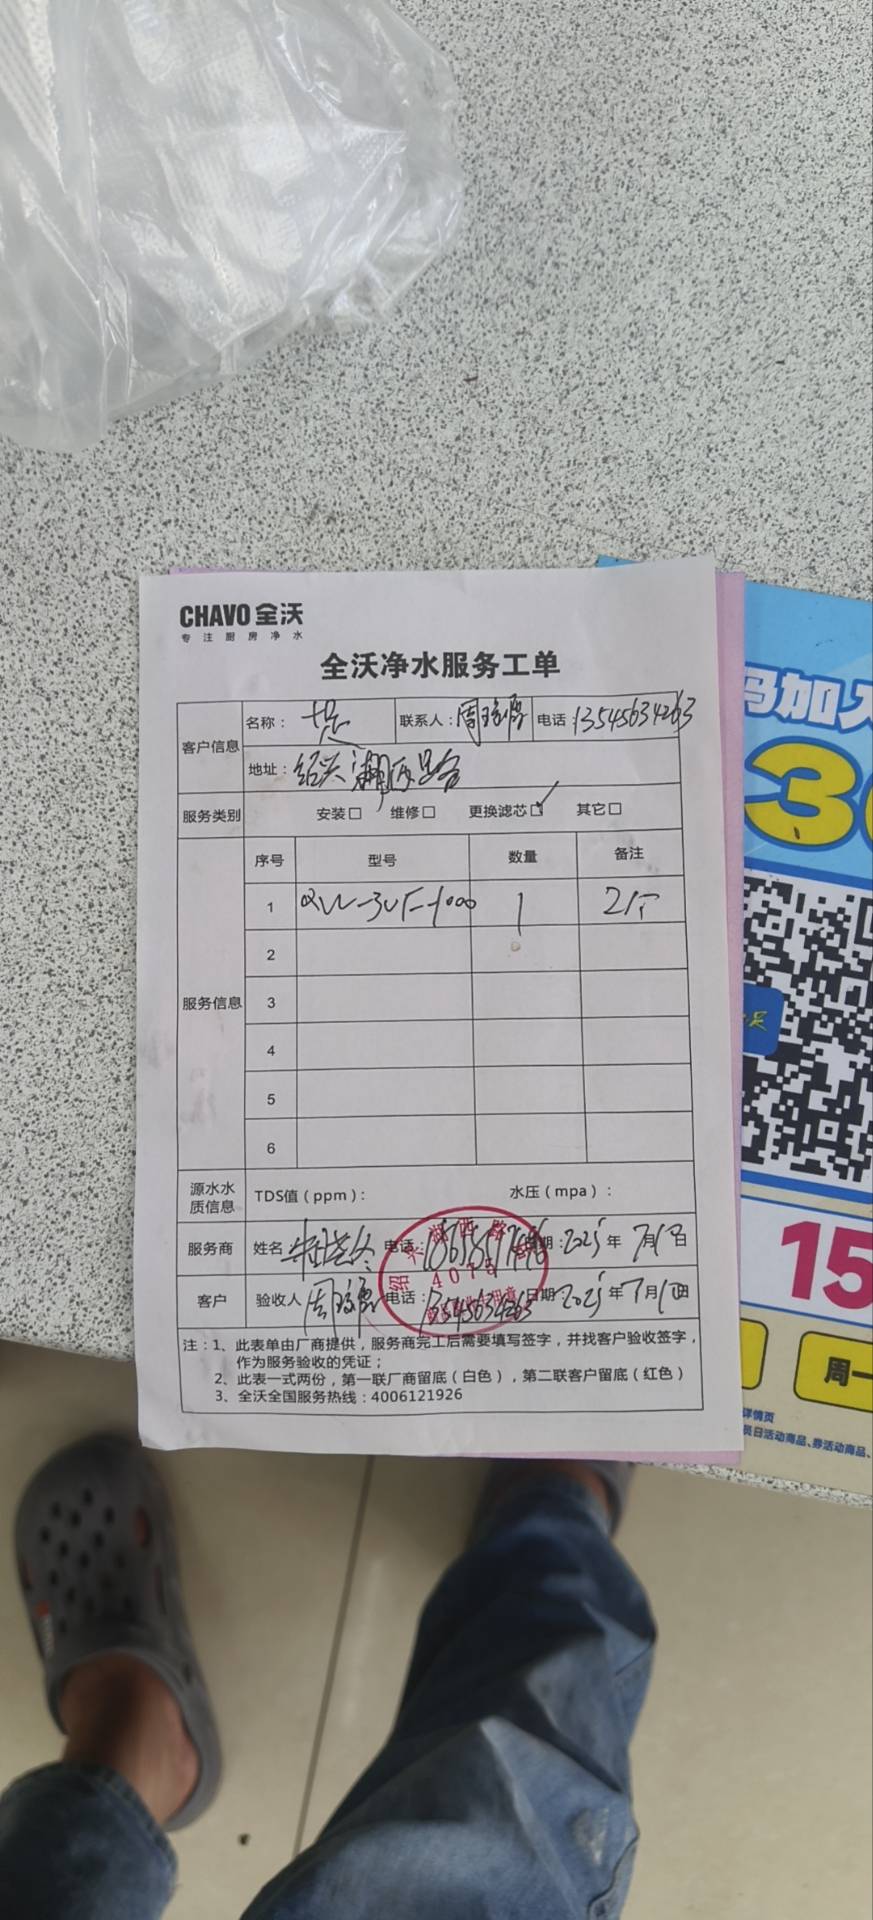 CHAVO 全沃
专注厨房净水
全沃净水服务工单
客户信息
名称：
联系人：周
电话：13545634263
地址：绍兴湖西路
服务类别 安装□ 维修□ 更换滤芯□ 其它□
服务信息
序号 型号 数量 备注
1 QW-3UF-1000 1 2个
2
3
4
5
6
源水水质信息 TDS值（ppm）： 水压（mpa）：
服务商 姓名：朱 电话： 日期：2025年 7月1日
客户 验收人 周 电话：13545634263 日期：2025年7月1日
4075
注：1、此表单由厂商提供，服务商完工后需要填写签字，并找客户验收签字，
作为服务验收的凭证；
2、此表一式两份，第一联厂商留底（白色），第二联客户留底（红色）
3、全沃全国服务热线：4006121926
码加入
3
15
周一
详情页
员日活动商品、券活动商品、